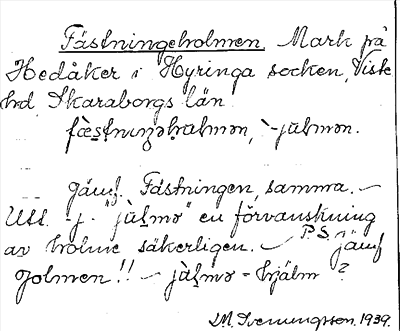 Fästningeholmen. Mark på
Hedåker i Hyringa socken, Viste
hd. Skaraborgs län.
fæstnuŋəhalmən, `-jalmən.
jämf. Fästningen, samma. –
Utt. -j- "jalmə" en förvanskning
av holme säkerligen. – P.S. jämf
golmen!! – jalmə - hjälm ?
M. Svenungsson. 1939.